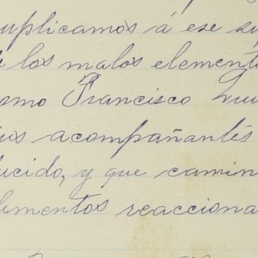 suplicamos á ese su
los malos element
como Francisco
acompañantes
ucido, y que camin
lementos reacciona